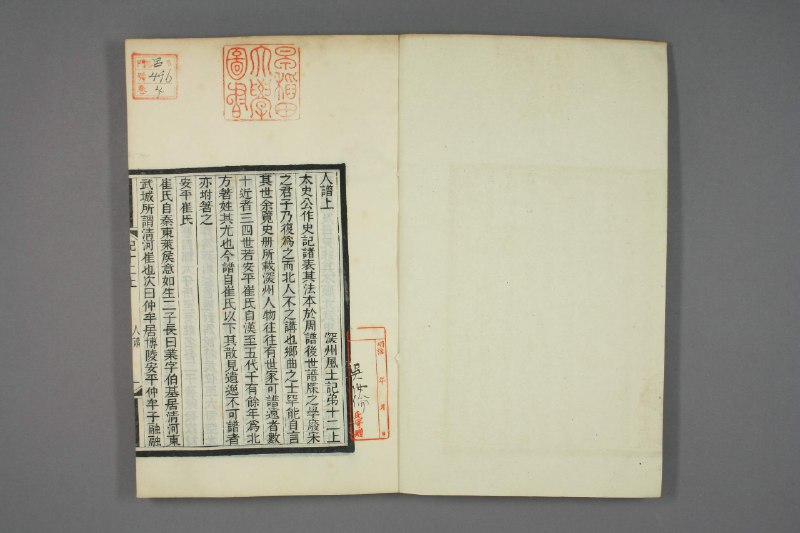 人譜上
深州風土記弟十二上
太史公作史記諸表其法本於周譜後世譜牒之學廢宋
之君子乃復為之而北人不之講也鄉曲之士罕能自言
其世余覽史册所載深州人物往往有世家可譜遠者數
十近者三四世若安平崔氏自漢至五代千有餘年為北
方著姓其尤也今譜自崔氏以下其散見遺逸不可譜者
亦坿著之
安平崔氏
崔氏自秦東萊侯意如生二子長曰業字伯基居清河東
武城所謂清河崔也次曰仲牟居博陵安平仲牟子融融
記十二上
人譜
早稻田大學圖書
門
號
卷
呂
496
4
明治
年
月
吳汝綸
氏寄贈